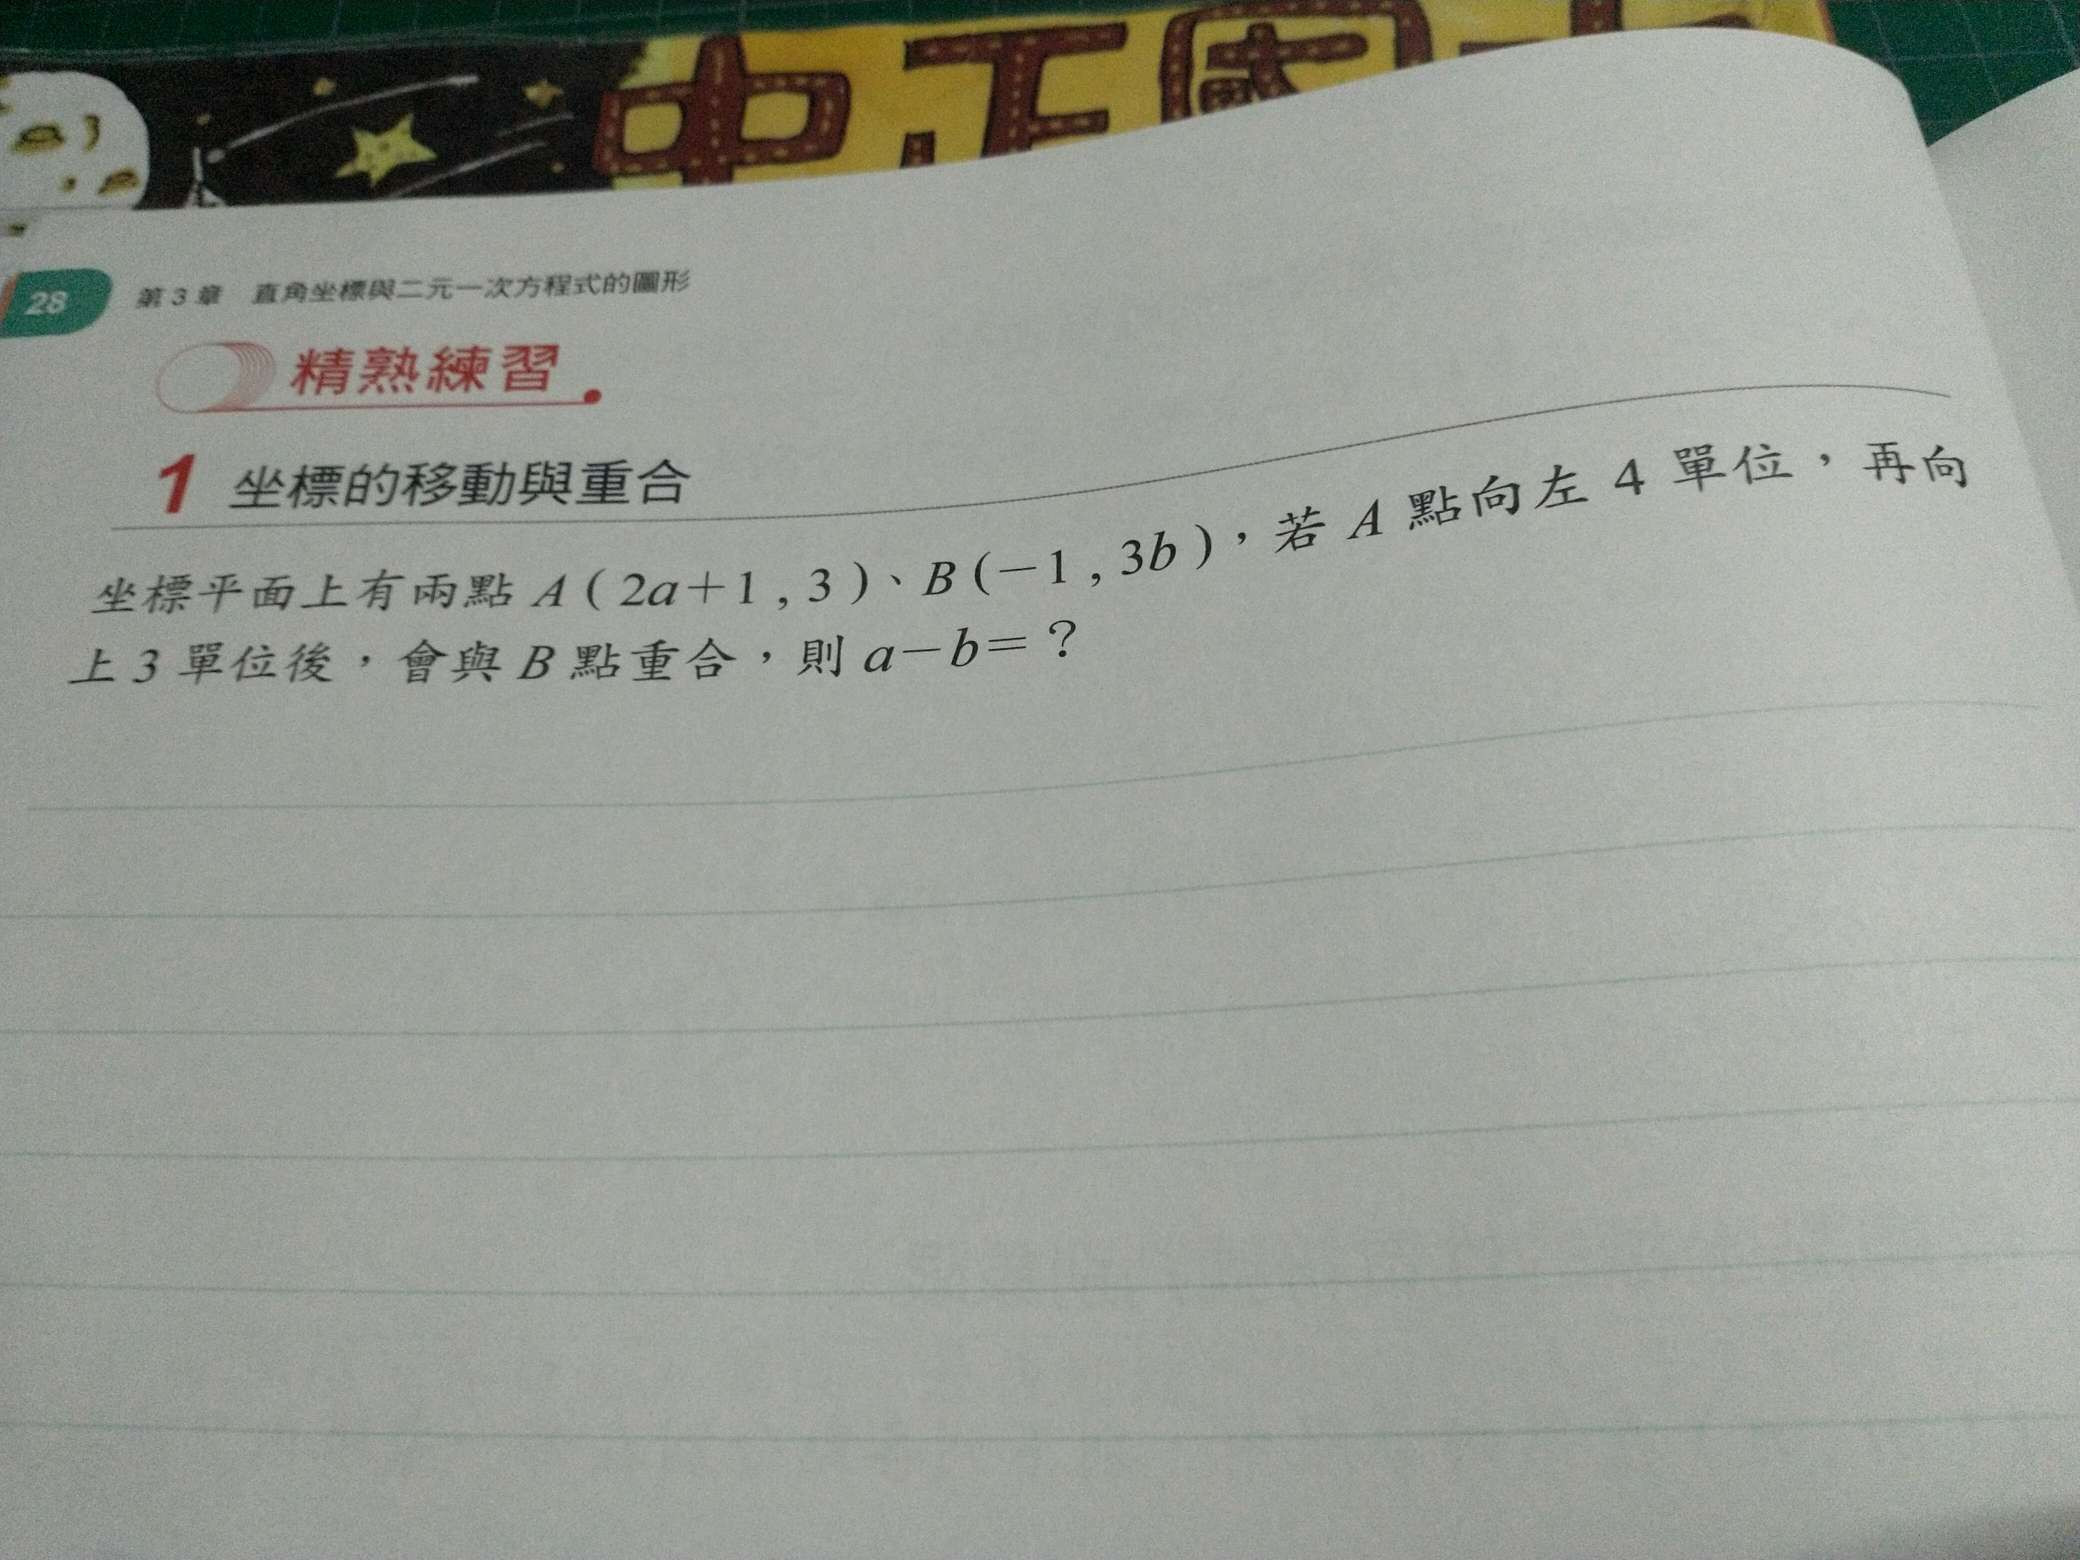 中正國
28 第3章 直角坐標與二元一次方程式的圖形
精熟練習
1 坐標的移動與重合
坐標平面上有兩點 A ( 2a+1 , 3 )、B (-1 , 3b )，若 A 點向左 4 單位，再向
上 3 單位後，會與 B 點重合，則 a-b=？